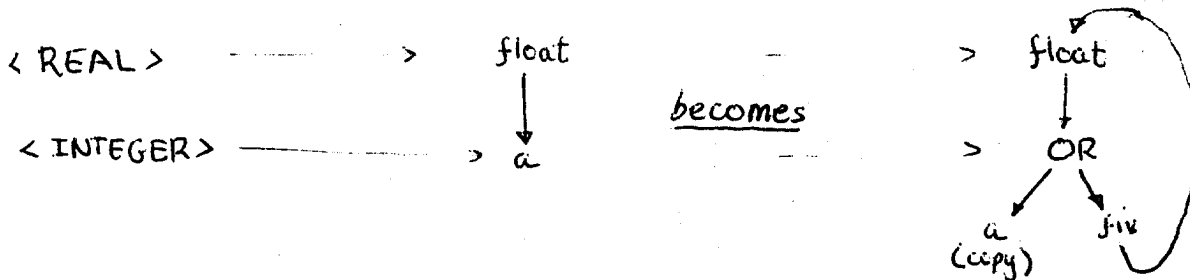 <REAL> -----> float - > float
becomes
<INTEGER> -----> a -- > OR
a
(copy)